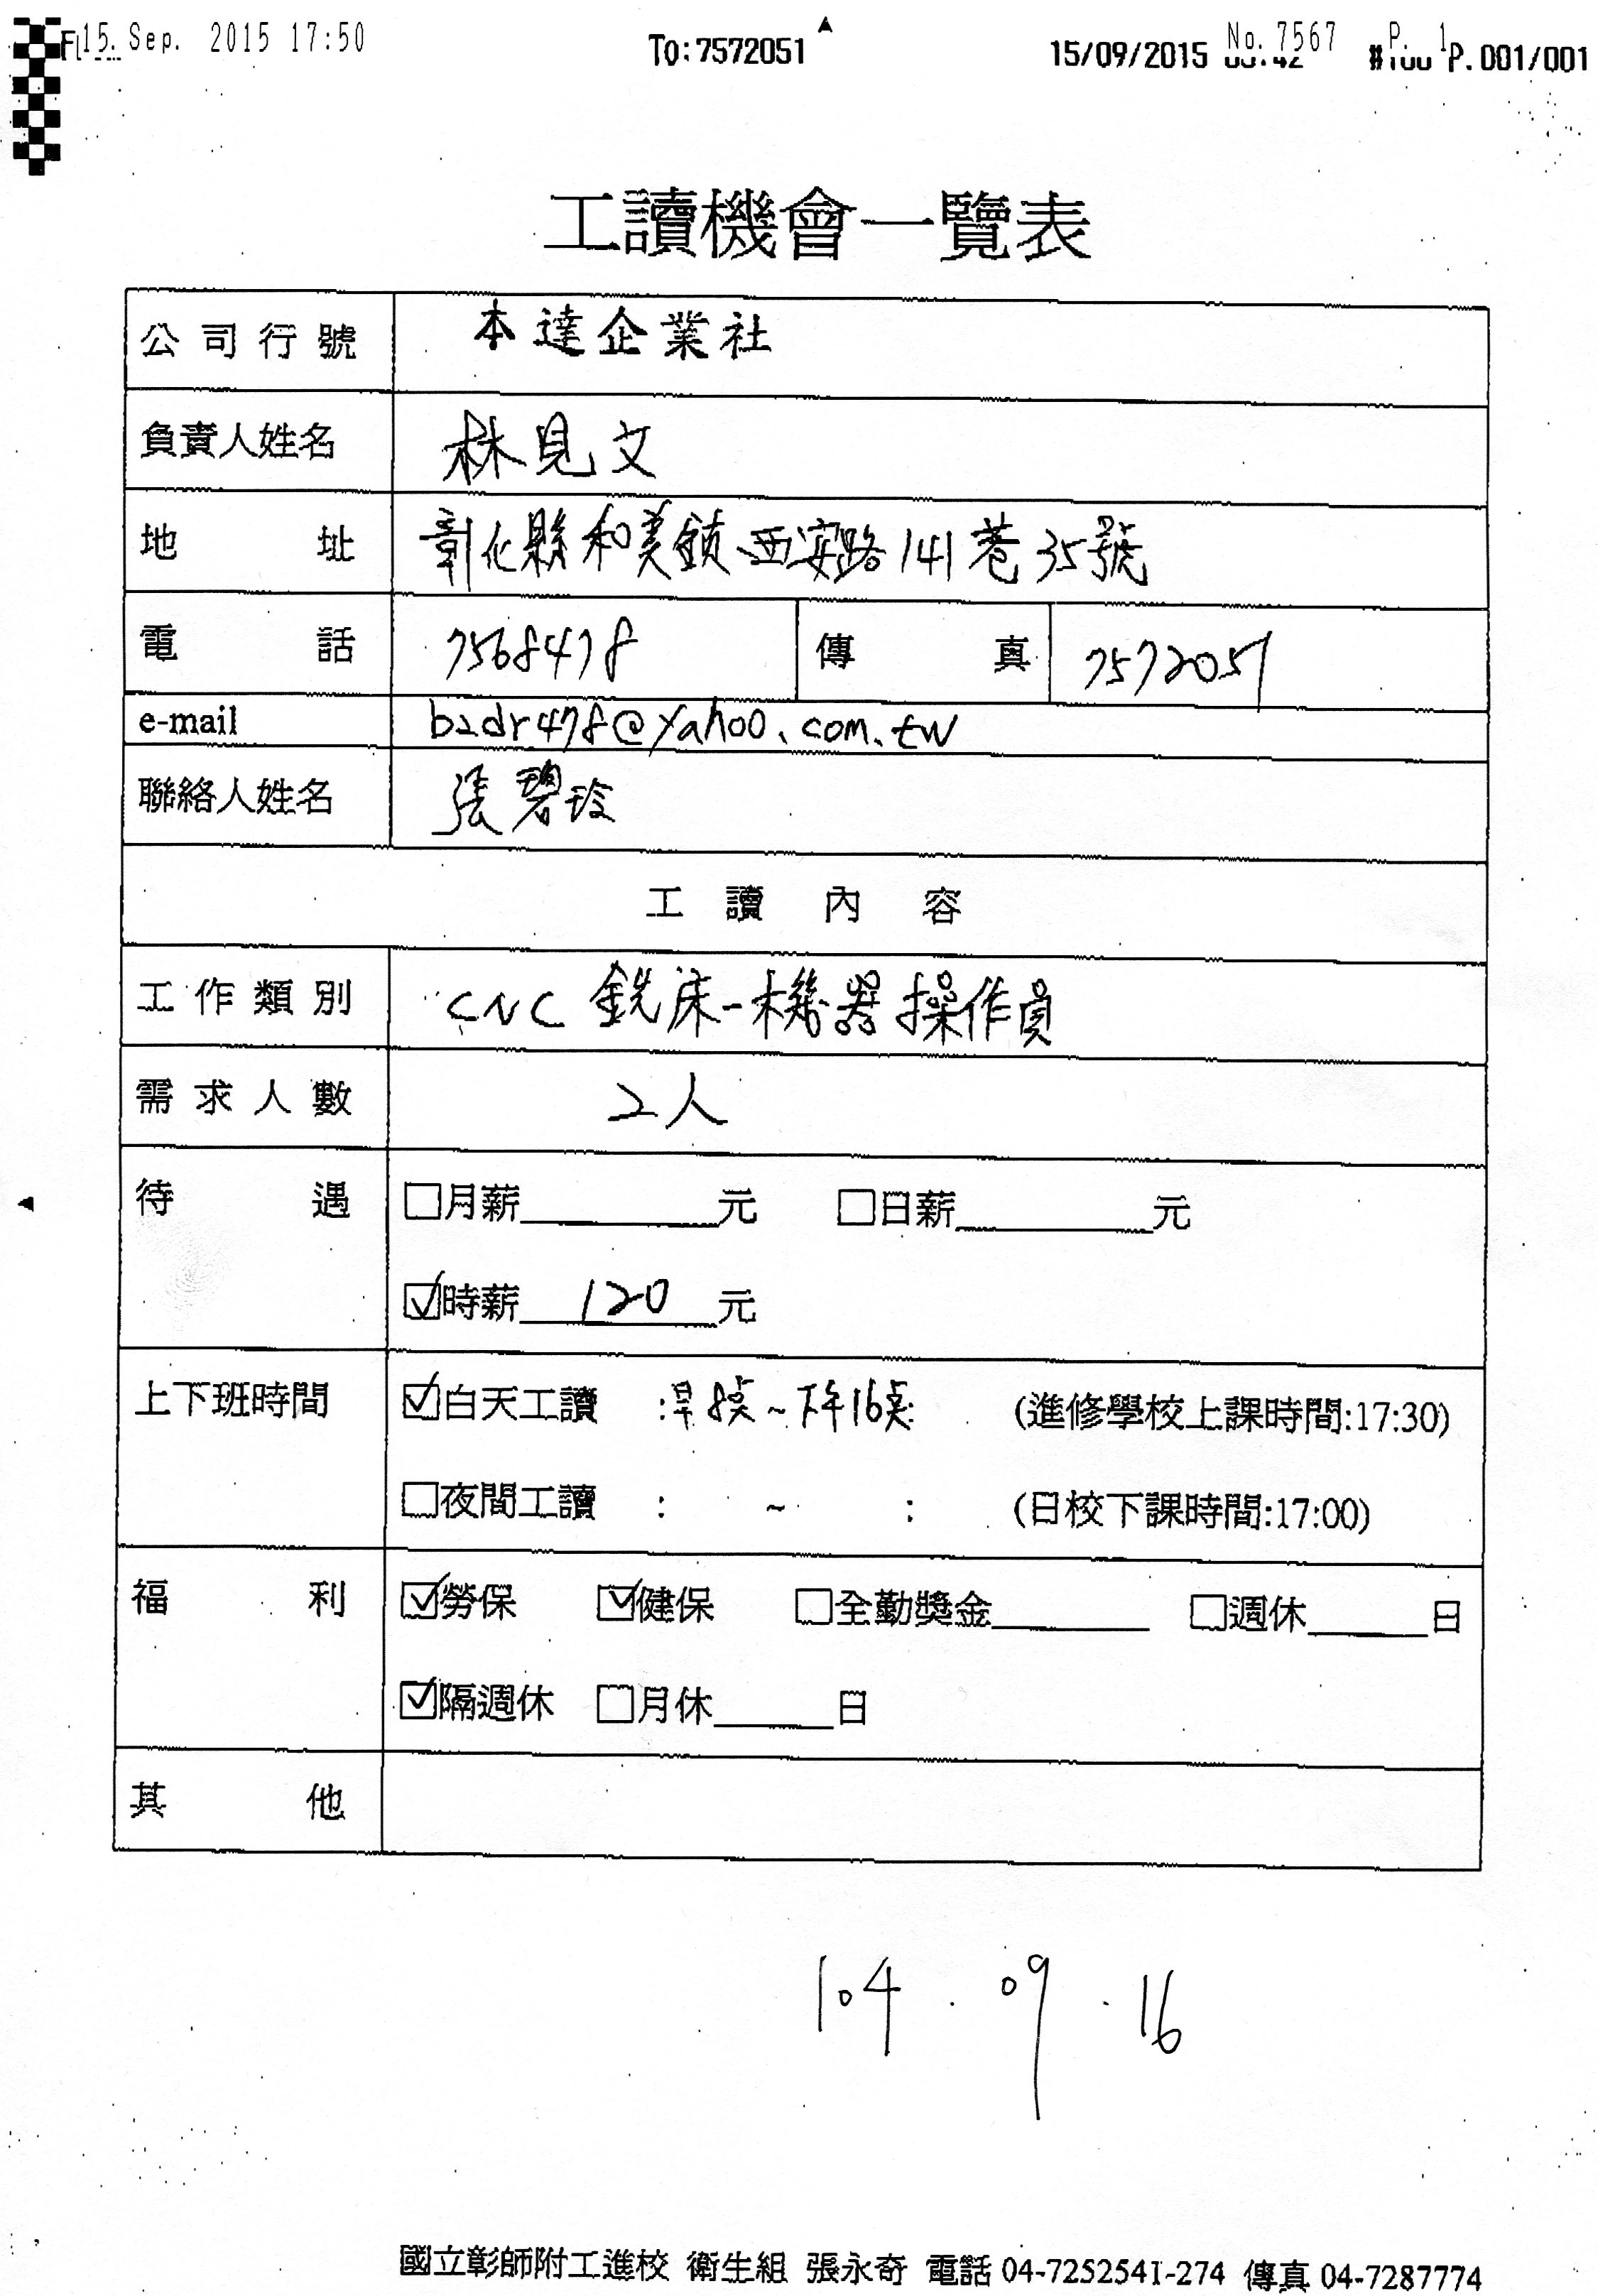 15. Sep. 2015 17:50 To:7572051 15/09/2015 No. 7567 P. 1 P.001/001
工讀機會一覽表
公司行號 本達企業社
負責人姓名 林見文
地址 彰化縣和美鎮西安路141巷35號
電話 7568478 傳真 7572051
e-mail b2dr478@yahoo.com.tw
聯絡人姓名 張碧玲
工讀內容
工作類別 CNC銑床-機器操作員
需求人數 2人
待遇 □月薪________元 □日薪________元
☑時薪 120 元
上下班時間 ☑白天工讀 :早8点~下午16点: (進修學校上課時間:17:30)
□夜間工讀 : ~ : (日校下課時間:17:00)
福利 ☑勞保 ☑健保 □全勤獎金______ □週休_____日
☑隔週休 □月休_____日
其他
104.09.16
國立彰師附工進校 衛生組 張永奇 電話 04-7252541-274 傳真 04-7287774